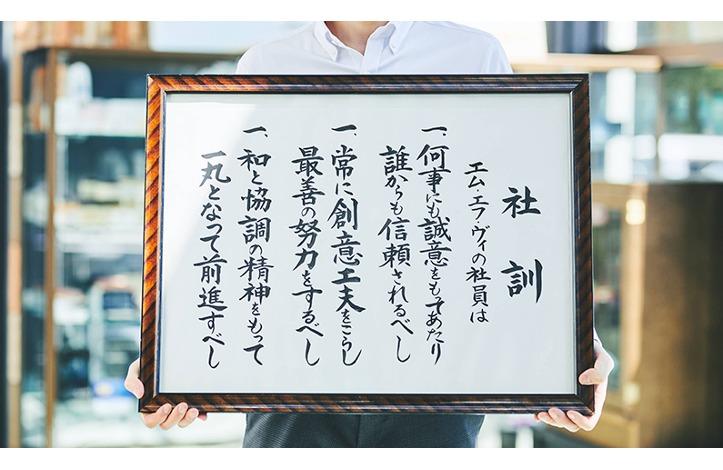 社訓
エム・エフ・ヴィの社員は
一、何事にも誠意をもってあたり
誰からも信頼されるべし
一、常に創意工夫をこらし
最善の努力をするべし
一、和と協調の精神をもって
一丸となって前進すべし